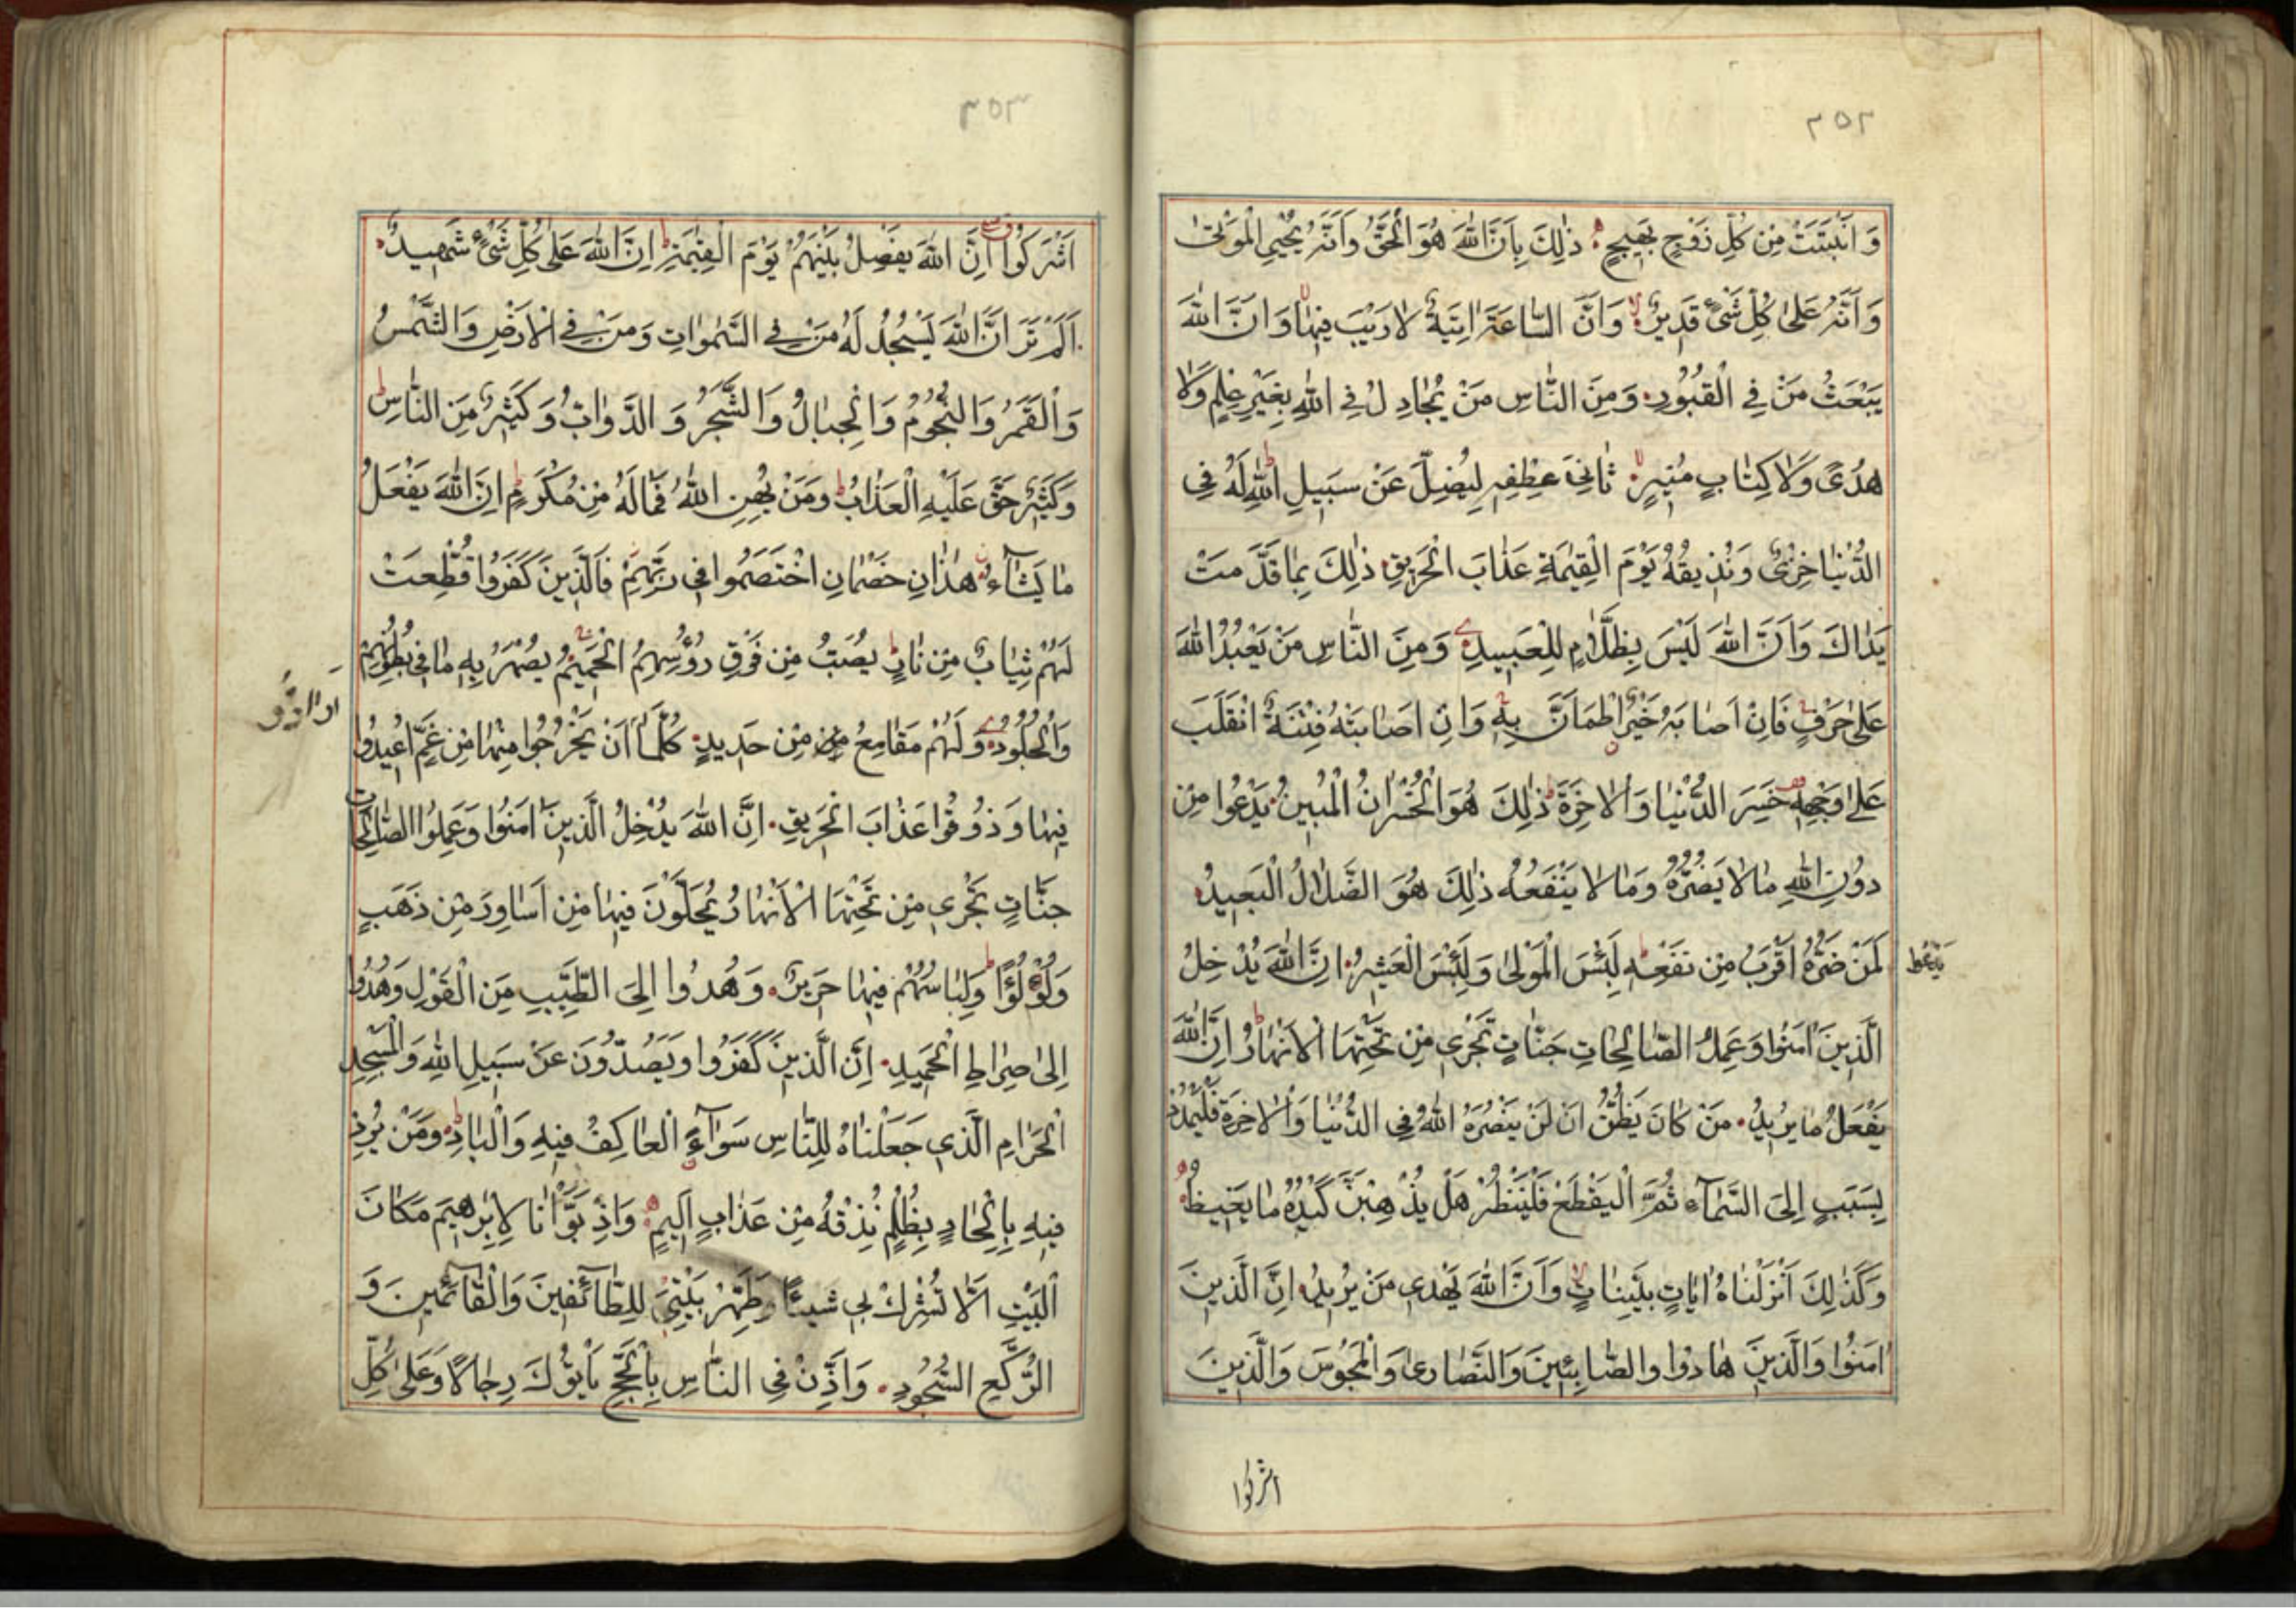 ٢٥٢
وَاَنْبَتَتْ مِنْ كُلِّ زَوْجٍ بَهِيجٍ ذٰلِكَ بِاَنَّ اللّٰهَ هُوَ الْحَقُّ وَاَنَّهُ يُحْيِي الْمَوْتٰى
وَاَنَّهُ عَلٰى كُلِّ شَيْءٍ قَدِيرٌ وَاَنَّ السَّاعَةَ اٰتِيَةٌ لَا رَيْبَ فِيهَا وَاَنَّ اللّٰهَ
يَبْعَثُ مَنْ فِي الْقُبُورِ وَمِنَ النَّاسِ مَنْ يُجَادِلُ فِي اللّٰهِ بِغَيْرِ عِلْمٍ وَلَا
هُدًى وَلَا كِتَابٍ مُنِيرٍ ثَانِيَ عِطْفِهِ لِيُضِلَّ عَنْ سَبِيلِ اللّٰهِ لَهُ فِي
الدُّنْيَا خِزْيٌ وَنُذِيقُهُ يَوْمَ الْقِيٰمَةِ عَذَابَ الْحَرِيقِ ذٰلِكَ بِمَا قَدَّمَتْ
يَدَاكَ وَاَنَّ اللّٰهَ لَيْسَ بِظَلَّامٍ لِلْعَبِيدِ وَمِنَ النَّاسِ مَنْ يَعْبُدُ اللّٰهَ
عَلٰى حَرْفٍ فَاِنْ اَصَابَهُ خَيْرٌ اطْمَاَنَّ بِهِ وَاِنْ اَصَابَتْهُ فِتْنَةٌ انْقَلَبَ
عَلٰى وَجْهِهِ خَسِرَ الدُّنْيَا وَالْاٰخِرَةَ ذٰلِكَ هُوَ الْخُسْرَانُ الْمُبِينُ يَدْعُوا مِنْ
دُونِ اللّٰهِ مَا لَا يَضُرُّهُ وَمَا لَا يَنْفَعُهُ ذٰلِكَ هُوَ الضَّلَالُ الْبَعِيدُ
لَمَنْ ضَرُّهُ اَقْرَبُ مِنْ نَفْعِهِ لَبِئْسَ الْمَوْلٰى وَلَبِئْسَ الْعَشِيرُ اِنَّ اللّٰهَ يُدْخِلُ
الَّذِينَ اٰمَنُوا وَعَمِلُ الصَّالِحَاتِ جَنَّاتٍ تَجْرِي مِنْ تَحْتِهَا الْاَنْهَارُ اِنَّ اللّٰهَ
يَفْعَلُ مَا يُرِيدُ مَنْ كَانَ يَظُنُّ اَنْ لَنْ يَنْصُرَهُ اللّٰهُ فِي الدُّنْيَا وَالْاٰخِرَةِ فَلْيَمْدُدْ
بِسَبَبٍ اِلَى السَّمَآءِ ثُمَّ الْيَقْطَعْ فَلْيَنْظُرْ هَلْ يُذْهِبَنَّ كَيْدُهُ مَا يَغِيظُ
وَكَذٰلِكَ اَنْزَلْنَاهُ اٰيَاتٍ بَيِّنَاتٍ وَاَنَّ اللّٰهَ يَهْدِي مَنْ يُرِيدُ اِنَّ الَّذِينَ
اٰمَنُوا وَالَّذِينَ هَادُوا وَالصَّابِئِينَ وَالنَّصَارٰى وَالْمَجُوسَ وَالَّذِينَ
اشركوا
٣٥٣
اَشْرَكُوا اِنَّ اللّٰهَ يَفْصِلُ بَيْنَهُمْ يَوْمَ الْقِيٰمَةِ اِنَّ اللّٰهَ عَلٰى كُلِّ شَيْءٍ شَهِيدٌ
اَلَمْ تَرَ اَنَّ اللّٰهَ يَسْجُدُ لَهُ مَنْ فِي السَّمٰوَاتِ وَمَنْ فِي الْاَرْضِ وَالشَّمْسُ
وَالْقَمَرُ وَالنُّجُومُ وَالْجِبَالُ وَالشَّجَرُ وَالدَّوَابُّ وَكَثِيرٌ مِنَ النَّاسِ
وَكَثِيرٌ حَقَّ عَلَيْهِ الْعَذَابُ وَمَنْ يُهِنِ اللّٰهُ فَمَا لَهُ مِنْ مُكْرِمٍ اِنَّ اللّٰهَ يَفْعَلُ
مَا يَشَآءُ هٰذَانِ خَصْمَانِ اخْتَصَمُوا فِي رَبِّهِمْ فَالَّذِينَ كَفَرُوا قُطِّعَتْ
لَهُمْ ثِيَابٌ مِنْ نَارٍ يُصَبُّ مِنْ فَوْقِ رُؤُسِهِمُ الْحَمِيمُ يُصْهَرُ بِهِ مَا فِي بُطُونِهِمْ
وَالْجُلُودُ وَلَهُمْ مَقَامِعُ مِنْ حَدِيدٍ كُلَّمَا اَنْ يَخْرُجُوا مِنْهَا مِنْ غَمٍّ اُعِيدُوا
فِيهَا وَذُوقُوا عَذَابَ الْحَرِيقِ اِنَّ اللّٰهَ يُدْخِلُ الَّذِينَ اٰمَنُوا وَعَمِلُوا الصَّالِحَاتِ
جَنَّاتٍ تَجْرِي مِنْ تَحْتِهَا الْاَنْهَارُ يُحَلَّوْنَ فِيهَا مِنْ اَسَاوِرَ مِنْ ذَهَبٍ
وَلُؤْلُؤًا وَلِبَاسُهُمْ فِيهَا حَرِيرٌ وَهُدُوا اِلَى الطَّيِّبِ مِنَ الْقَوْلِ وَهُدُوا
اِلٰى صِرَاطِ الْحَمِيدِ اِنَّ الَّذِينَ كَفَرُوا وَيَصُدُّونَ عَنْ سَبِيلِ اللّٰهِ وَالْمَسْجِدِ
الْحَرَامِ الَّذِي جَعَلْنَاهُ لِلنَّاسِ سَوَآءً الْعَاكِفُ فِيهِ وَالْبَادِ وَمَنْ يُرِدْ
فِيهِ بِاِلْحَادٍ بِظُلْمٍ نُذِقْهُ مِنْ عَذَابٍ اَلِيمٍ وَاِذْ بَوَّاْنَا لِاِبْرٰهِيمَ مَكَانَ
الْبَيْتِ اَلَّا تُشْرِكْ بِي شَيْئًا وَطَهِّرْ بَيْتِيَ لِلطَّآئِفِينَ وَالْقَآئِمِينَ وَ
الرُّكَّعِ السُّجُودِ وَاَذِّنْ فِي النَّاسِ بِالْحَجِّ يَاْتُوكَ رِجَالًا وَعَلٰى كُلِّ